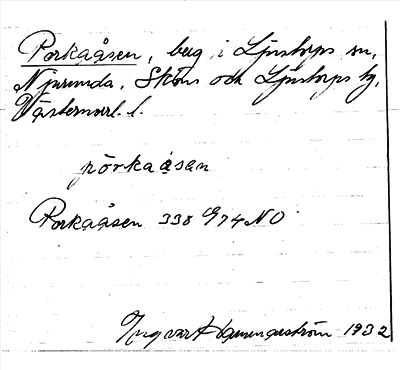 Porkaåsen, berg, i Ljustorps sn,
Njurunda, Sköns och Ljustorps tg,
Västernorrl. l.
pörkaåsan
Porkaåsen 338 G74 NO
Ingvar Hammarström 1932